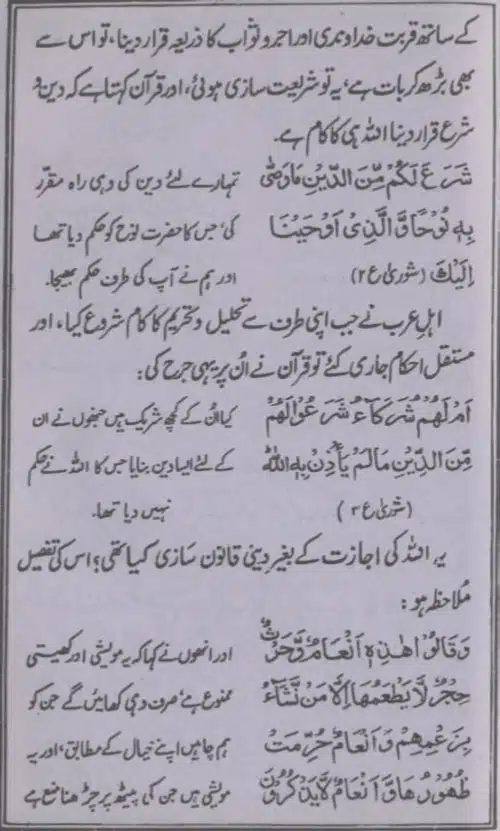 کے ساتھ قربت خداوندی اور اجر و ثواب کا ذریعہ قرار دینا، تو اس سے
بھی بڑھ کر بات ہے، یہ تو شریعت سازی ہوئی، اور قرآن کہتا ہے کہ دین و
شرع قرار دینا اللہ ہی کا کام ہے۔
شَرَعَ لَكُمْ مِّنَ الدِّيْنِ مَا وَصّٰى تمہارے لئے دین کی وہی راہ مقرّر
بِهٖ نُوْحًا وَّالَّذِىْ اَوْحَيْنَا کی، جس کا حضرت نوح کو حکم دیا تھا
اِلَيْكَ (شوریٰ ع ۲) اور ہم نے آپ کی طرف حکم بھیجا۔
اہل عرب نے جب اپنی طرف سے تحلیل و تحریم کا کام شروع کیا، اور
مستقل احکام جاری کئے تو قرآن نے اُن پر یہی جرح کی:
اَمْ لَهُمْ شُرَكَآءُ شَرَعُوْا لَهُمْ کیا اُن کے کچھ شریک ہیں جنھوں نے ان
مِّنَ الدِّيْنِ مَا لَمْ يَاْذَنْۢ بِهِ اللّٰهُ کے لئے ایسا دین بنایا جس کا اللہ نے حکم
(شوریٰ ع ۳) نہیں دیا تھا۔
یہ اللہ کی اجازت کے بغیر دینی قانون سازی کیا تھی؟ اس کی تفصیل
مُلاحظہ ہو:
وَقَالُوْا هٰذِهٖٓ اَنْعَامٌ وَّحَرْثٌ اور انھوں نے کہا کہ یہ مویشی اور کھیتی
حِجْرٌ لَّا يَطْعَمُهَآ اِلَّا مَنْ نَّشَآءُ ممنوع ہے، صرف وہی کھائیں گے جن کو
بِزَعْمِهِمْ وَاَنْعَامٌ حُرِّمَتْ ہم چاہیں اپنے خیال کے مطابق، اور یہ
ظُهُوْرُهَا وَاَنْعَامٌ لَّا يَذْكُرُوْنَ مویشی ہیں جن کی پیٹھ پر چڑھنا منع ہے